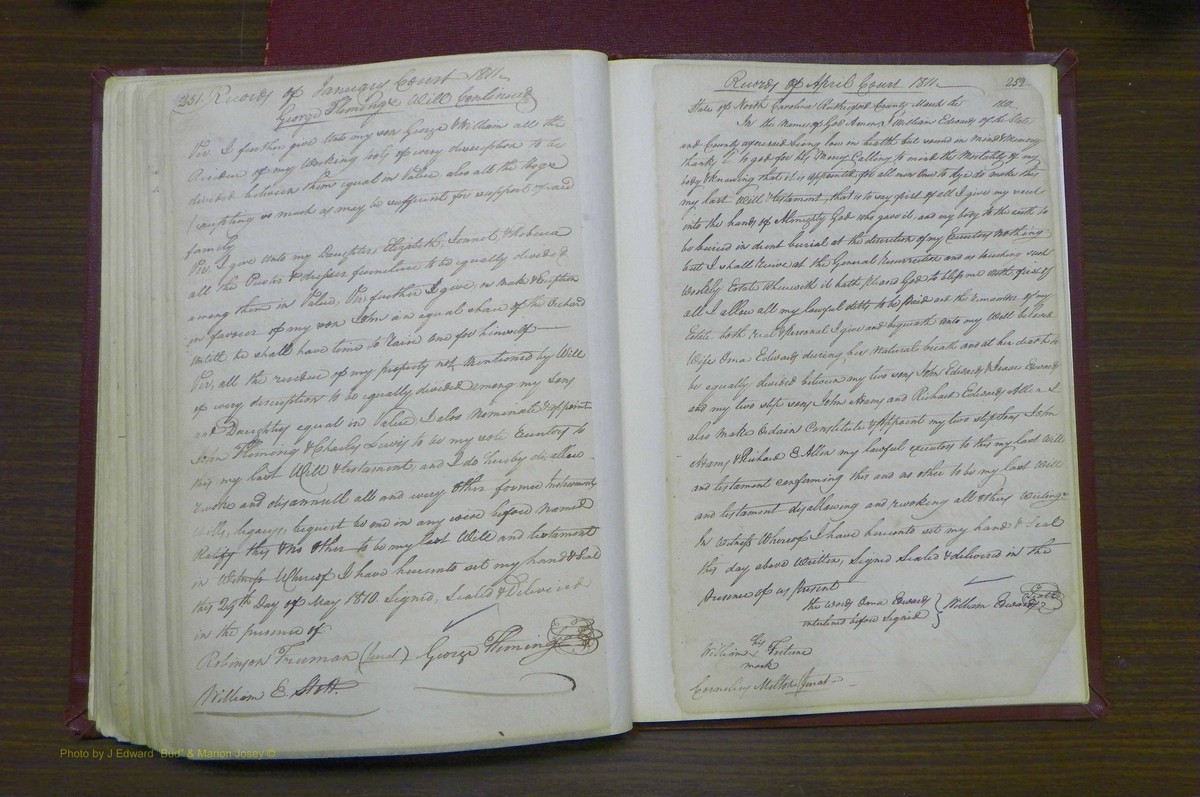 251 Records of January Court 1811
George Fleming's Will Continued
Viz. I further give unto my son George & William all the
Residue of my working tools of every description to be
divided between them equal in Value also all the hogs
excepting so much as may be sufficient for support of said
family
Viz, I give unto my Daughters Elizabeth, Jennet, & Rebecca
all the Pewter & dresser furniture to be equally divided
among them in Value, Viz further I give, or make Exception
in favour of my son John an equal share of the Orchard
untill he shall have time to Raise one for himself
Viz, all the residue of my property not mentioned by Will
of every description to be equally divided among my Sons
and Daughters equal in Value I also Nominate & appoint
John Fleming & Charles Lewis to be my sole Executors to
this my last Will & testament, and I do hereby disallow
revoke and disannull all and every other former testaments
Wills, legacys, bequest by me in any wise before Named
Ratify this & no other to be my last Will and testament
in Witness Whereof I have hereunto set my hand & Seal
this 29th Day of May 1810 Signed, Sealed & Delivered
in the presence of
Robinson Truman (Jurat) George Fleming Seal
William E. Stott
Records of April Court 1811. 252
State of North Carolina Rutherford County March the 1811
In the Name of God Amen, I William Edwards of the State
and County aforesaid being low in health but sound in mind & memory
thanks to god for his Mercy Calling to mind the Mortality of my
body & knowing that it is appointed for all men Once to dye do make this
my last Will & testament, that is to say first of all I give my soul
into the hands of Almighty God who gave it, and my body to the earth to
be buried in decent burial at the discretion of my Executors nothing
but I shall receive at the General Resurrection and as touching such
Worldly Estate wherewith it hath pleased God to bless me with, first of
all I allow all my lawful debts to be paid and the remainder of my
Estate both real & personal I give and bequeath unto my Well beloved
Wife Oma Edwards during her Natural breath and at her death to
be equally divided between my two sons John Edwards & Isaac Edwards
and my two step sons John Adams and Richard Edwards Allen I
also make Ordain Constitute & Appoint my two stepsons John
Adams & Richard E. Allen my lawful executors to this my last Will
and testament confirming this and no other to be my last Will
and testament disallowing and revoking all others Writings
In Witness Whereof I have hereunto set my hand & Seal
this day above Written, Signed Sealed & delivered in the
Presence of us Present
the words Oma Edwards
interlined before Signed } William Edwards Seal
William his Fortune
mark
Cornelius Melton Jurat
Photo by J Edward "Bud" & Marion Josey ©